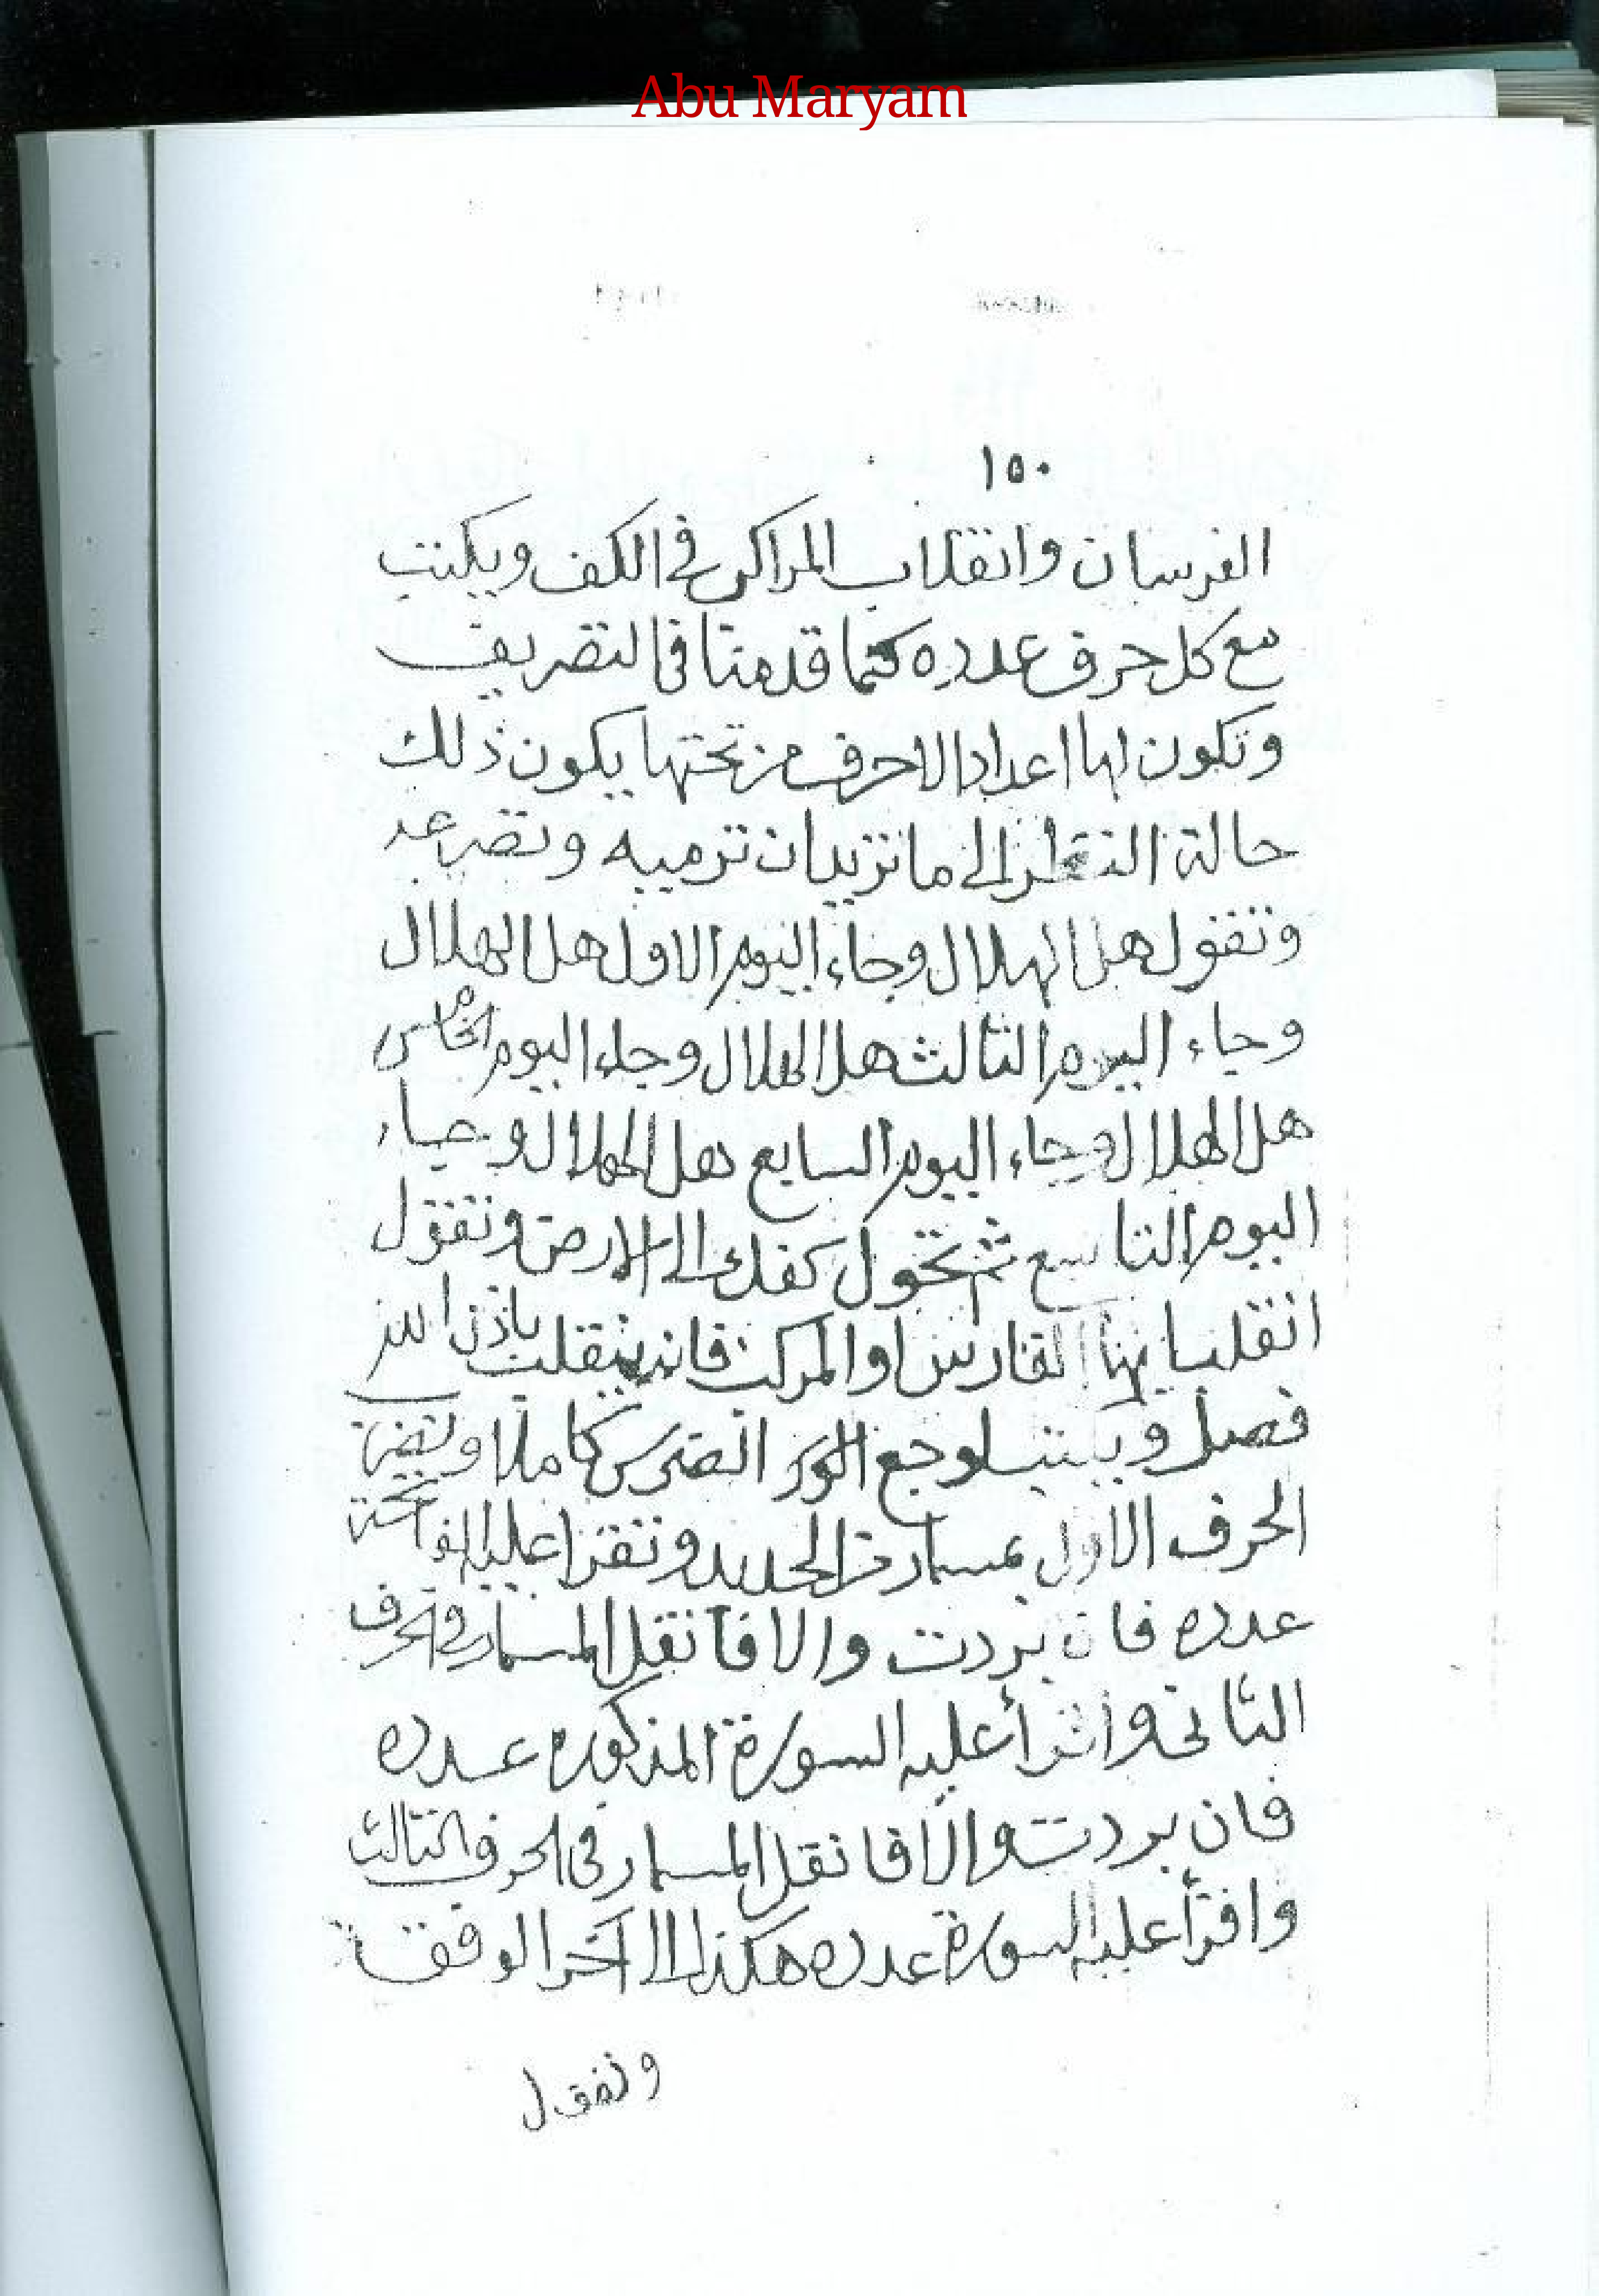 Abu Maryam
١٥٠
الفرسان وانقلاب المراكب فى الكف ويكتب
مع كل حرف عدده كما قدمنا فى التصريف
وتكون لها اعداد الاحرف من تحتها يكون ذلك
حالة النظر الى ما تريد ان ترميه وتضر عد
وتقول هل الهلال وجاء اليوم الاول هل الهلال
وجاء اليوم الثالث هل الهلال وجاء اليوم الخامس
هل الهلال وجاء اليوم السابع هل الهلال وجاء
اليوم التاسع ثم تحول كفك الى الارض وتقول
انقلب ايها الفارس او المركب فانه ينقلب باذن الله
فصل ويكتب لوجع الضرس كاملا وتضرب
الحرف الاول بمسمار من الحديد وتقرا عليه الفاتحة
عدده فان بردت والا فانقل المسمار فى الحرف
الثانى واقرأ عليه السورة المذكورة عدده
فان بردت والا فانقل المسمار فى الحرف الثالث
واقرأ عليه السورة عدده هكذا الى آخر الوفق
وتقول